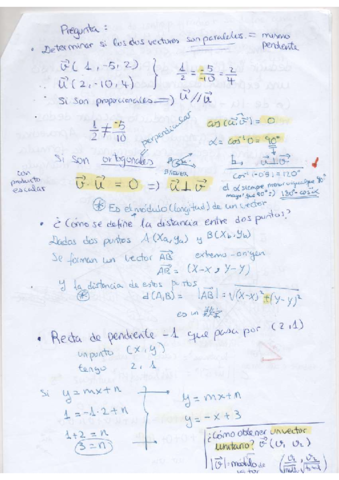 Pregunta:
• Determinar si los dos vectores son paralelos. = mismo pendiente
v⃗ ( 1, -5, 2)
u⃗ (2, -10, 4)
1/2 = -5/-10 = 2/4
· Si son proporcionales =) u⃗ // u⃗
1/2 ≠ -5/10
perpendicular
cos (u⃗ v⃗) = 0
Si son ortogonales
con producto escalar
v⃗ · u⃗ = 0 =) u⃗ ⊥ v⃗
* Es el módulo (longitud) de un vector
• ¿Cómo se define la distancia entre dos puntos?
Dados dos puntos A (Xa, Ya) y B(Xb, Yb)
Se forman un vector AB extremo - origen
AB = (X-x, Y-y)
y la distancia de estos puntos
* d(A,B) = |AB| = √(X-x)² + (Y-y)²
• Recta de pendiente -1 que pasa por (2,1)
un punto (x, y)
tengo 2, 1
Si y = mx + n
1 = -1·2 + n
1+2 = n
3 = n
y = mx + n
y = -x + 3
¿Cómo obtener un vector unitario? v⃗ (v₁, v₂)
|v⃗| = módulo de vector